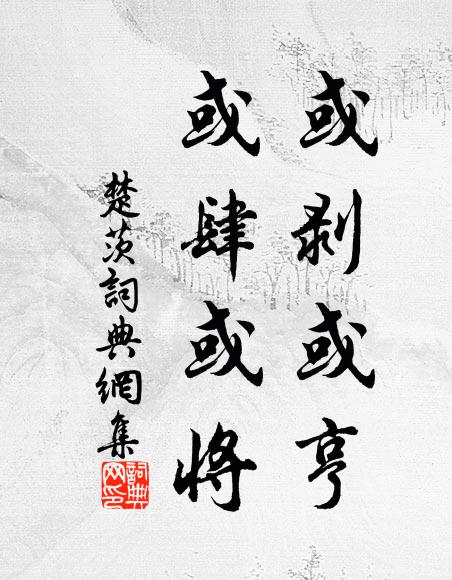 或剥或亨
或肆或将
楚茨詞典網集
詞典网印